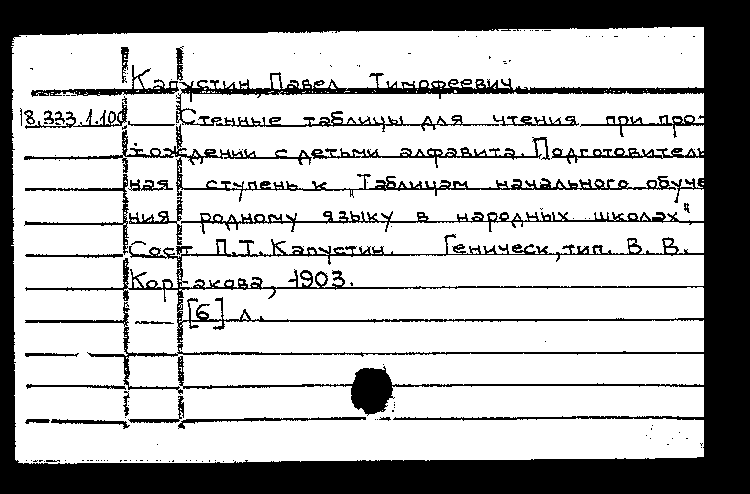 Капустин, Павел Тимофеевич.
18.333.1.100. Стенные таблицы для чтения при про-
хождении с детьми алфавита. Подготовитель
ная ступень к „Таблицам начального обуче
ния родному языку в народных школах".
Сост. П.Т. Капустин. Геническ, тип. В. В.
Кор-акова, 1903.
[6] л.